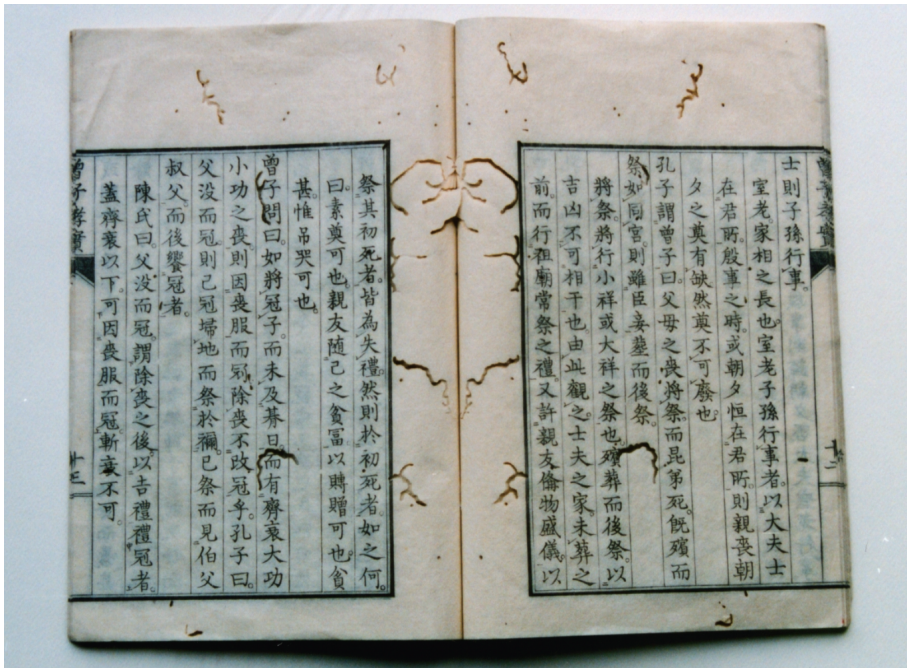 曾子孝實
士則子孫行事。
室老。家相之長也。室老子孫行事者。以大夫士
在君所。殷事之時。或朝夕恒在君所。則親喪朝
夕之奠有缺然奠不可廢也。
孔子謂曾子曰。父母之喪將祭而昆弟死。旣殯而
祭如同宮。則雖臣妾葬而後祭。
將祭。將行小祥或大祥之祭也。殯葬而後祭。以
吉凶不可相干也由此觀之。士夫之家。未葬之
前。而行祖廟常祭之禮。又許親友備物盛儀。以
十二
祭其初死者。皆為失禮。然則於初死者。如之何。
曰。素奠可也。親友随己之貧冨以賻贈可也。貧
甚。惟吊哭可也。
曾子問曰。如將冠子。而未及朞日。而有齊衰大功
小功之喪。則因喪服而冠。除喪不改冠乎。孔子曰。
父没而冠。則已冠埽地而祭於禰。已祭而見伯父
叔父。而後饗冠者。
陳氏曰父没而冠。謂除喪之後。以吉禮禮冠者。
蓋齊衰以下。可因喪服而冠。斬衰不可。
曾子孝實
十三